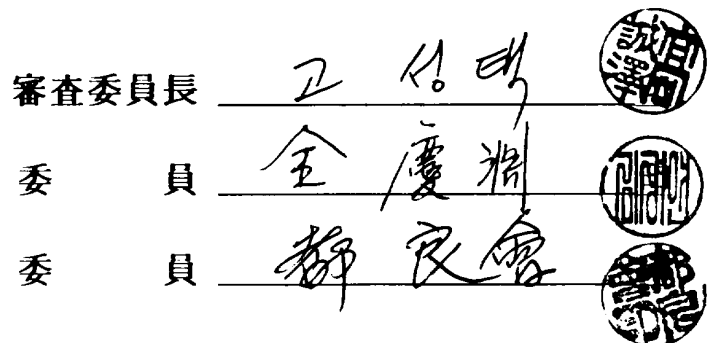 審査委員長 고성택
委員 金慶淵
委員 都良會